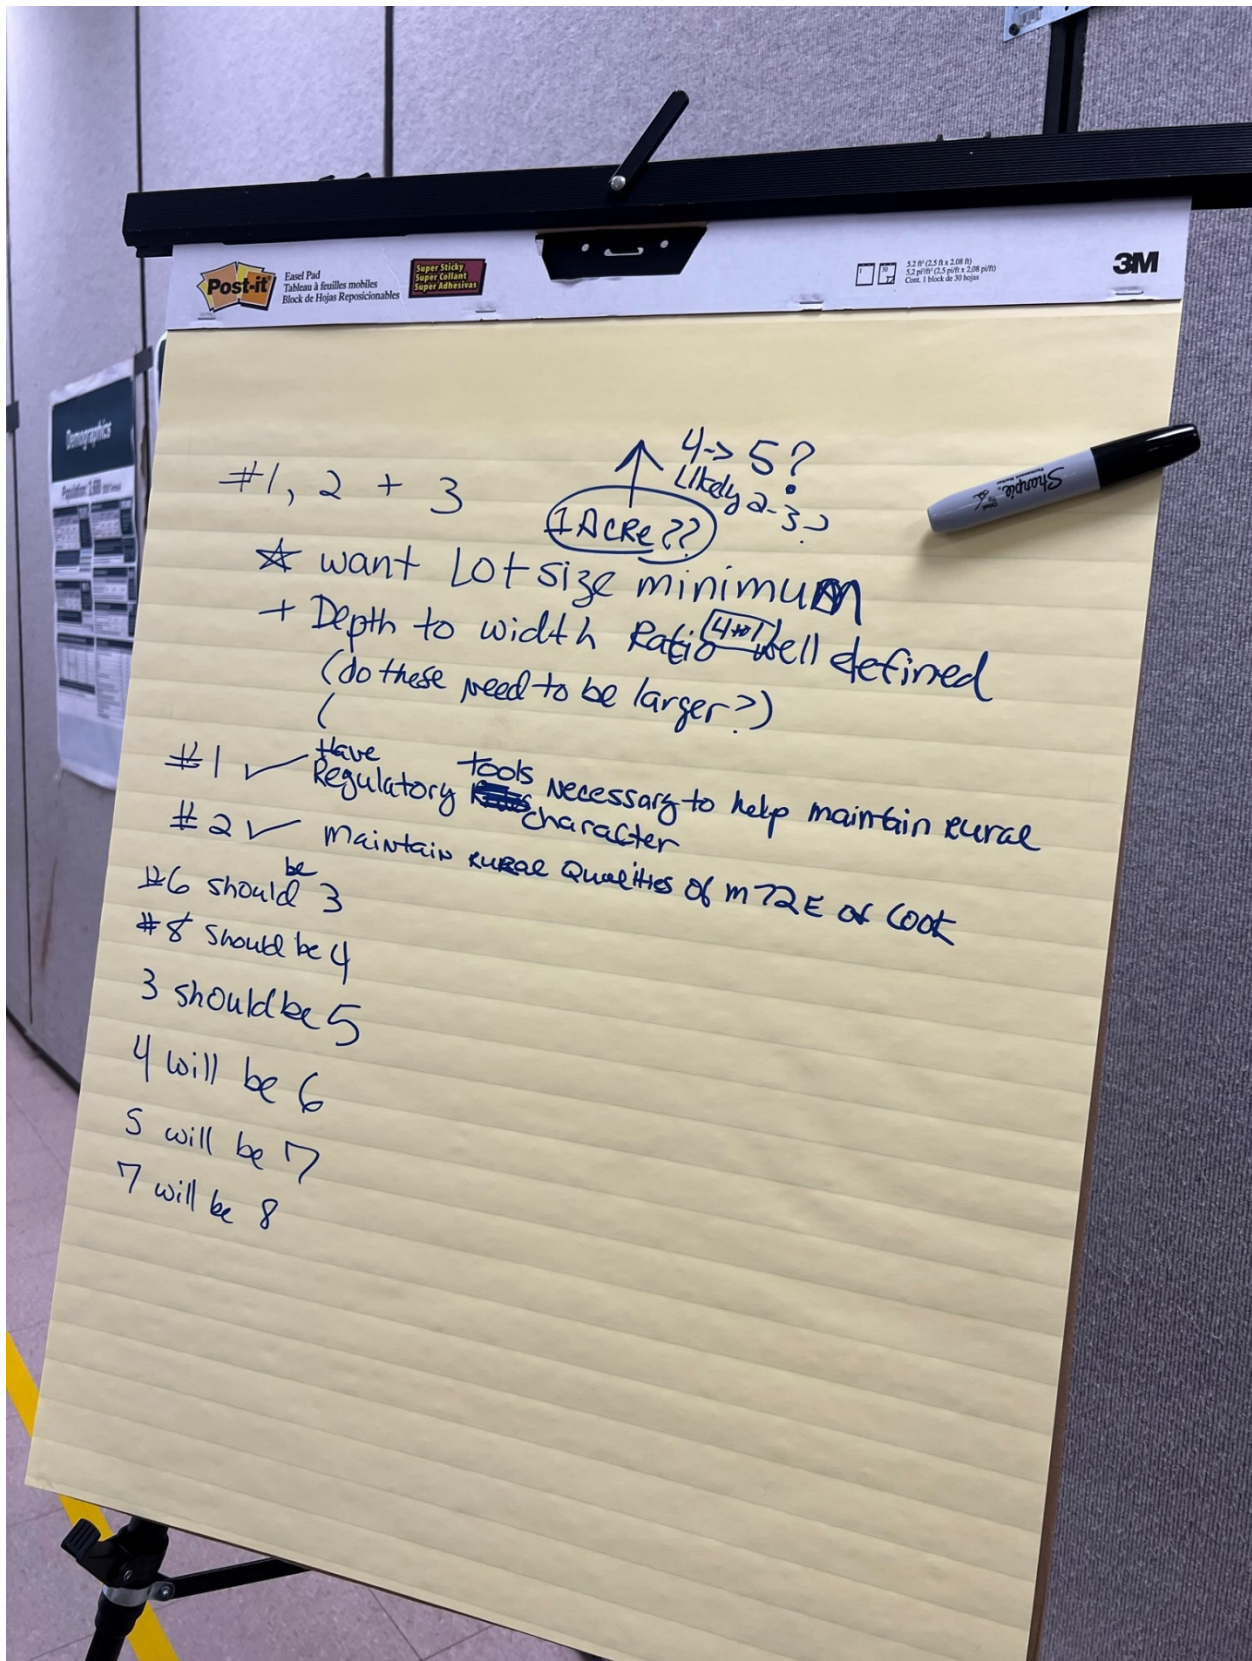 Post-it
Easel Pad
Tableau à feuilles mobiles
Block de Hojas Reposicionables
Super Sticky
Super Collant
Super Adhesivas
5.2 ft² (2.5 ft x 2.08 ft)
5,2 pi²/ft² (2,5 pi/ft x 2,08 pi/ft)
Cont. 1 block de 30 hojas
3M
Demographics
Sharpie
#1, 2 + 3
4-> 5?
Likely 2-3?
1 Acre??
☆ want Lot size minimum
+ Depth to width Ratio 4 to 1 well defined
(do these need to be larger?)
(
#1 ✓ Have Regulatory tools necessary to help maintain rural
character
#2 ✓ maintain rural Qualities of M72E or Cook
#6 should be 3
#8 should be 4
3 should be 5
4 will be 6
5 will be 7
7 will be 8